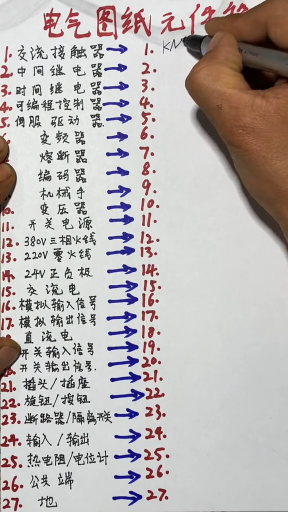 电气图纸元件符
1.交流接触器 → 1. KM
2.中间继电器 → 2.
3.时间继电器 → 3.
4.可编程控制器 → 4.
5.伺服驱动器 → 5.
变频器 → 6.
熔断器 → 7.
编码器 → 8.
机械手 → 9.
10.变压器 → 10.
11.开关电源 → 11.
12.380V三相火线 → 12.
13.220V零火线 → 13.
14.24V正负极 → 14.
15.交流电 → 15.
16.模拟输入信号 → 16.
17.模拟输出信号 → 17.
直流电 → 18.
开关输入信号 → 19.
开关输出信号. → 20.
21.插头/插座 → 21.
22.旋钮/按钮 → 22.
23.断路器/隔离开关 → 23.
24.输入/输出 → 24.
25.热电阻/电位计 → 25.
26.公共端 → 26.
27.地 → 27.